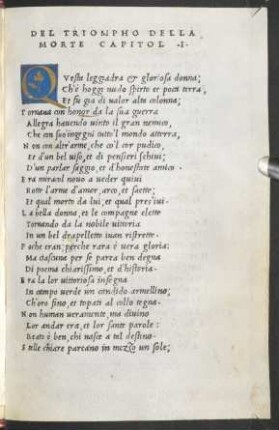 DEL TRIOMPHO DELLA
MORTE CAPITOL .I.
Questa leggiadra et gloriosa donna;
Ch'è hoggi nudo spirto et poca terra,
Et fu gia di valor alta colonna;
Tornava con honor da la sua guerra
Allegra havendo vinto il gran nemico,
Che con suo ingegni tutto'l mondo atterra,
Non con altr'arme, che co'l cor pudico,
Et d'un bel viso, et di pensieri schivi;
D'un parlar saggio, et d'honestate amico.
Era miracol novo a veder quivi
Rotte l'arme d'amor, arco, et saette;
Et qual morto da lui, et qual pres'ivi.
La bella donna, et le compagne elette
Tornando da la nobile vittoria
In un bel drappelletto ivan ristrette.
Poche eran; perche rara è vera gloria:
Ma ciascuna per se parea ben degna
Di poema chiarissimo, et d'historia.
Era la lor vittoriosa insegna
In campo verde un candido armellino;
Ch'oro fino, et topati al collo tegna.
Non human veramente, ma divino
Lor andar era, et lor sante parole:
Beato è ben, chi nasce a tal destino.
Stelle chiare pareano in mezzo un sole;